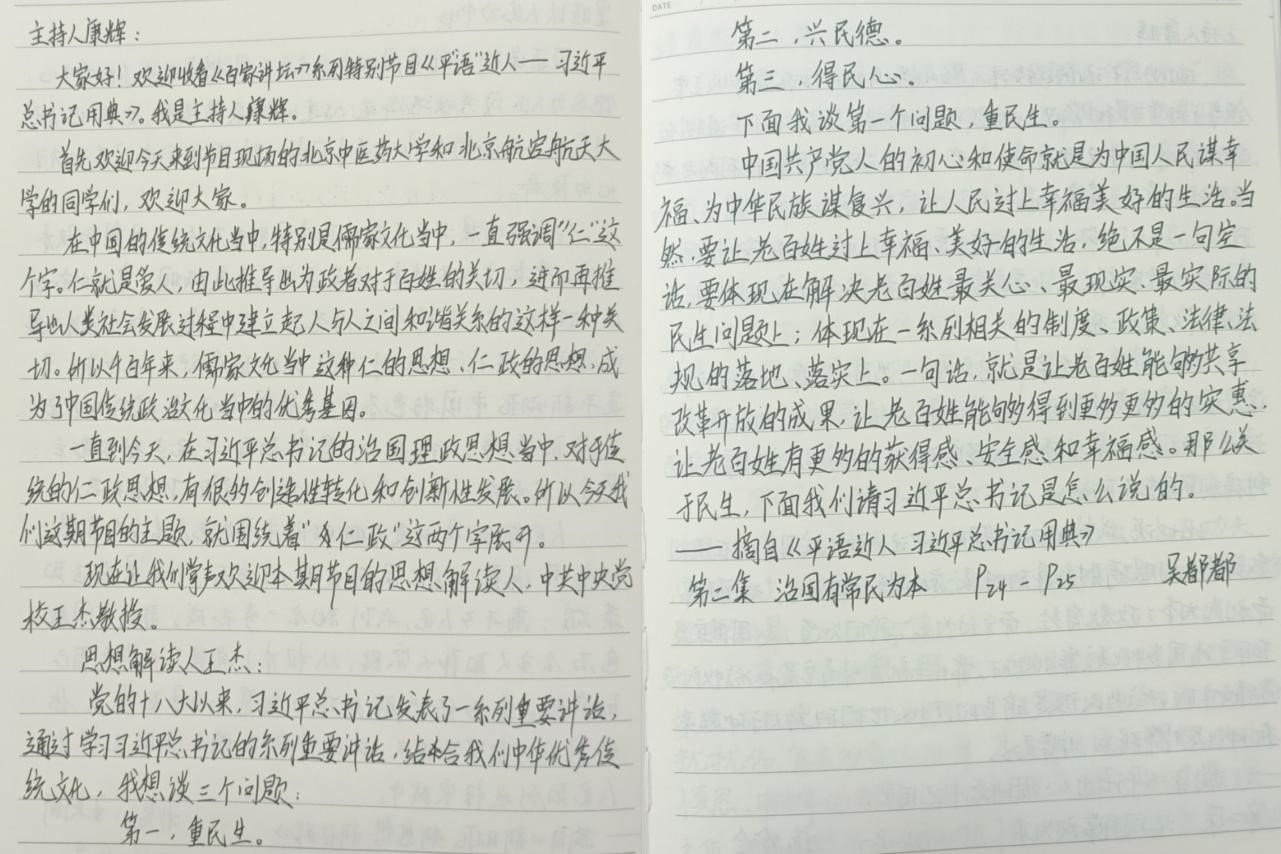 主持人康辉：
大家好！欢迎收看《百家讲坛》系列特别节目《平"语"近人——习近平
总书记用典》。我是主持人康辉。
首先欢迎今天来到节目现场的北京中医药大学和北京航空航天大
学的同学们，欢迎大家。
在中国的传统文化当中，特别是儒家文化当中，一直强调"仁"这
个字。仁就是爱人，由此推导出为政者对于百姓的关切，进而再推
导出人类社会发展过程中建立起人与人之间和谐关系的这样一种关
切。所以千百年来，儒家文化当中这种仁的思想、仁政的思想，成
为了中国传统政治文化当中的优秀基因。
一直到今天，在习近平总书记的治国理政思想当中，对于传
统的仁政思想，有很多创造性转化和创新性发展。所以今天我
们这期节目的主题，就围绕着"仁政"这两个字展开。
现在让我们掌声欢迎本期节目的思想解读人，中共中央党
校王杰教授。
思想解读人王杰：
党的十八大以来，习近平总书记发表了一系列重要讲话，
通过学习习近平总书记的系列重要讲话，结合我们中华优秀传
统文化，我想谈三个问题：
第一，重民生。
DATE
第二，兴民德。
第三，得民心。
下面我谈第一个问题，重民生。
中国共产党人的初心和使命就是为中国人民谋幸
福、为中华民族谋复兴，让人民过上幸福美好的生活。当
然，要让老百姓过上幸福、美好的生活，绝不是一句空
话，要体现在解决老百姓最关心、最现实、最实际的
民生问题上，体现在一系列相关的制度、政策、法律、法
规的落地、落实上。一句话，就是让老百姓能够共享
改革开放的成果，让老百姓能够得到更多更多的实惠，
让老百姓有更多的获得感、安全感和幸福感。那么关
于民生，下面我们请习近平总书记是怎么说的。
——摘自《平语近人 习近平总书记用典》
第二集 治国有常民为本 P24-P25 吴都都